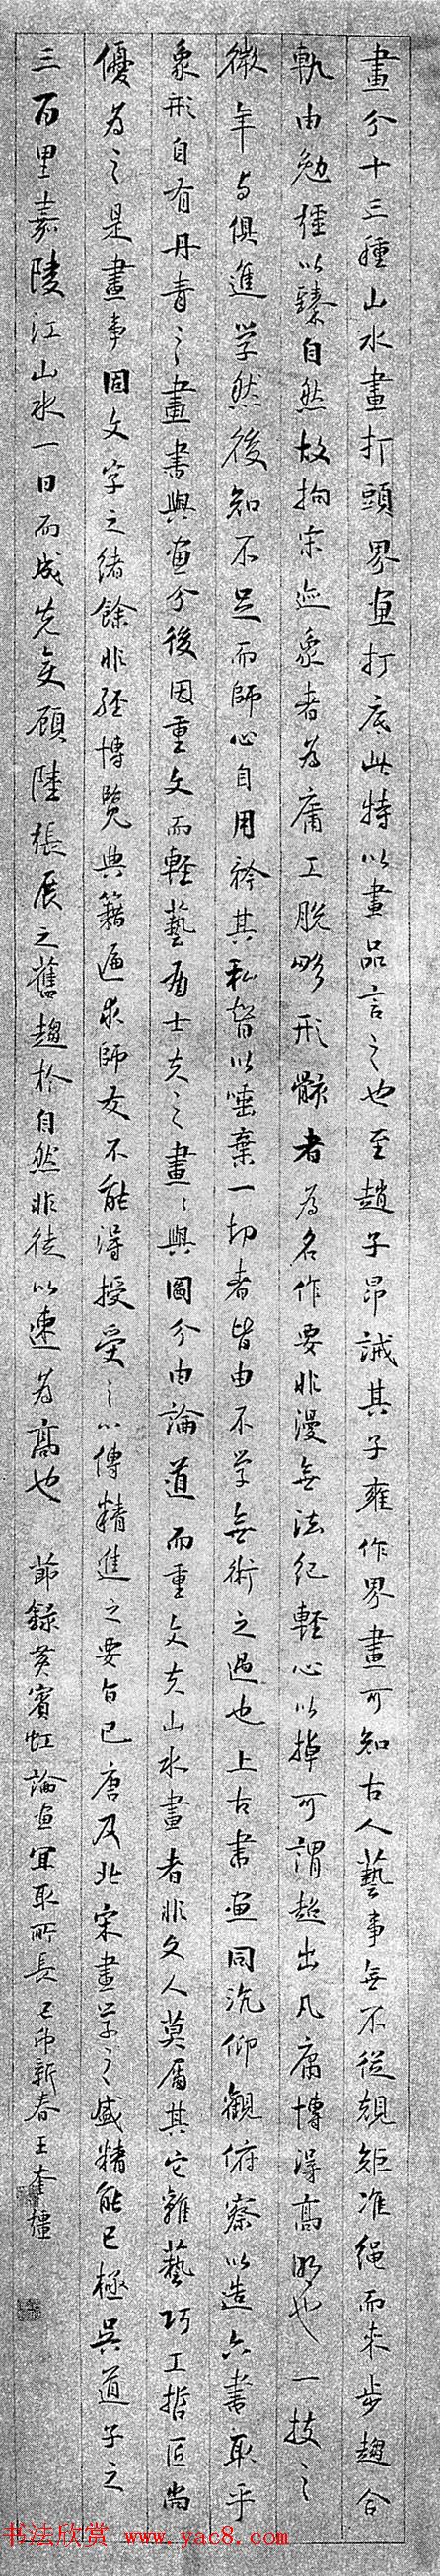 畫分十三種山水畫打頭界画打底此特以畫品言之也至趙子昂誡其子雍作界畫可知古人藝事無不從規矩準绳而来步趨合
軌由勉强以臻自然故拘宋迹象者为庸工脱略形骸者为名作要非漫無法纪輕心以掉可謂超出凡庸博得高明也一技之
微年与俱進学然後知不足而師心自用矜其私智以唾棄一切者皆由不学無術之過也上古書画同流仰觀俯察以造六書取乎
象形自有丹青之畫書與画分後因重文而輕藝有士夫之畫畫與圖分由論道而重文夫山水畫者非文人莫屬其它雜藝巧工哲匠尚
優为之是畫事固文字之緒餘非經博覽典籍遍求師友不能得授受之心傳精進之要旨已唐及北宋畫学之盛精能已極吳道子之
三百里嘉陵江山水一日而成先变顾陸張展之舊趨於自然非徒以速为高也 節録黄賓虹論画宜取所長 己卯新春王奎橿
书法欣赏 www.yac8.com